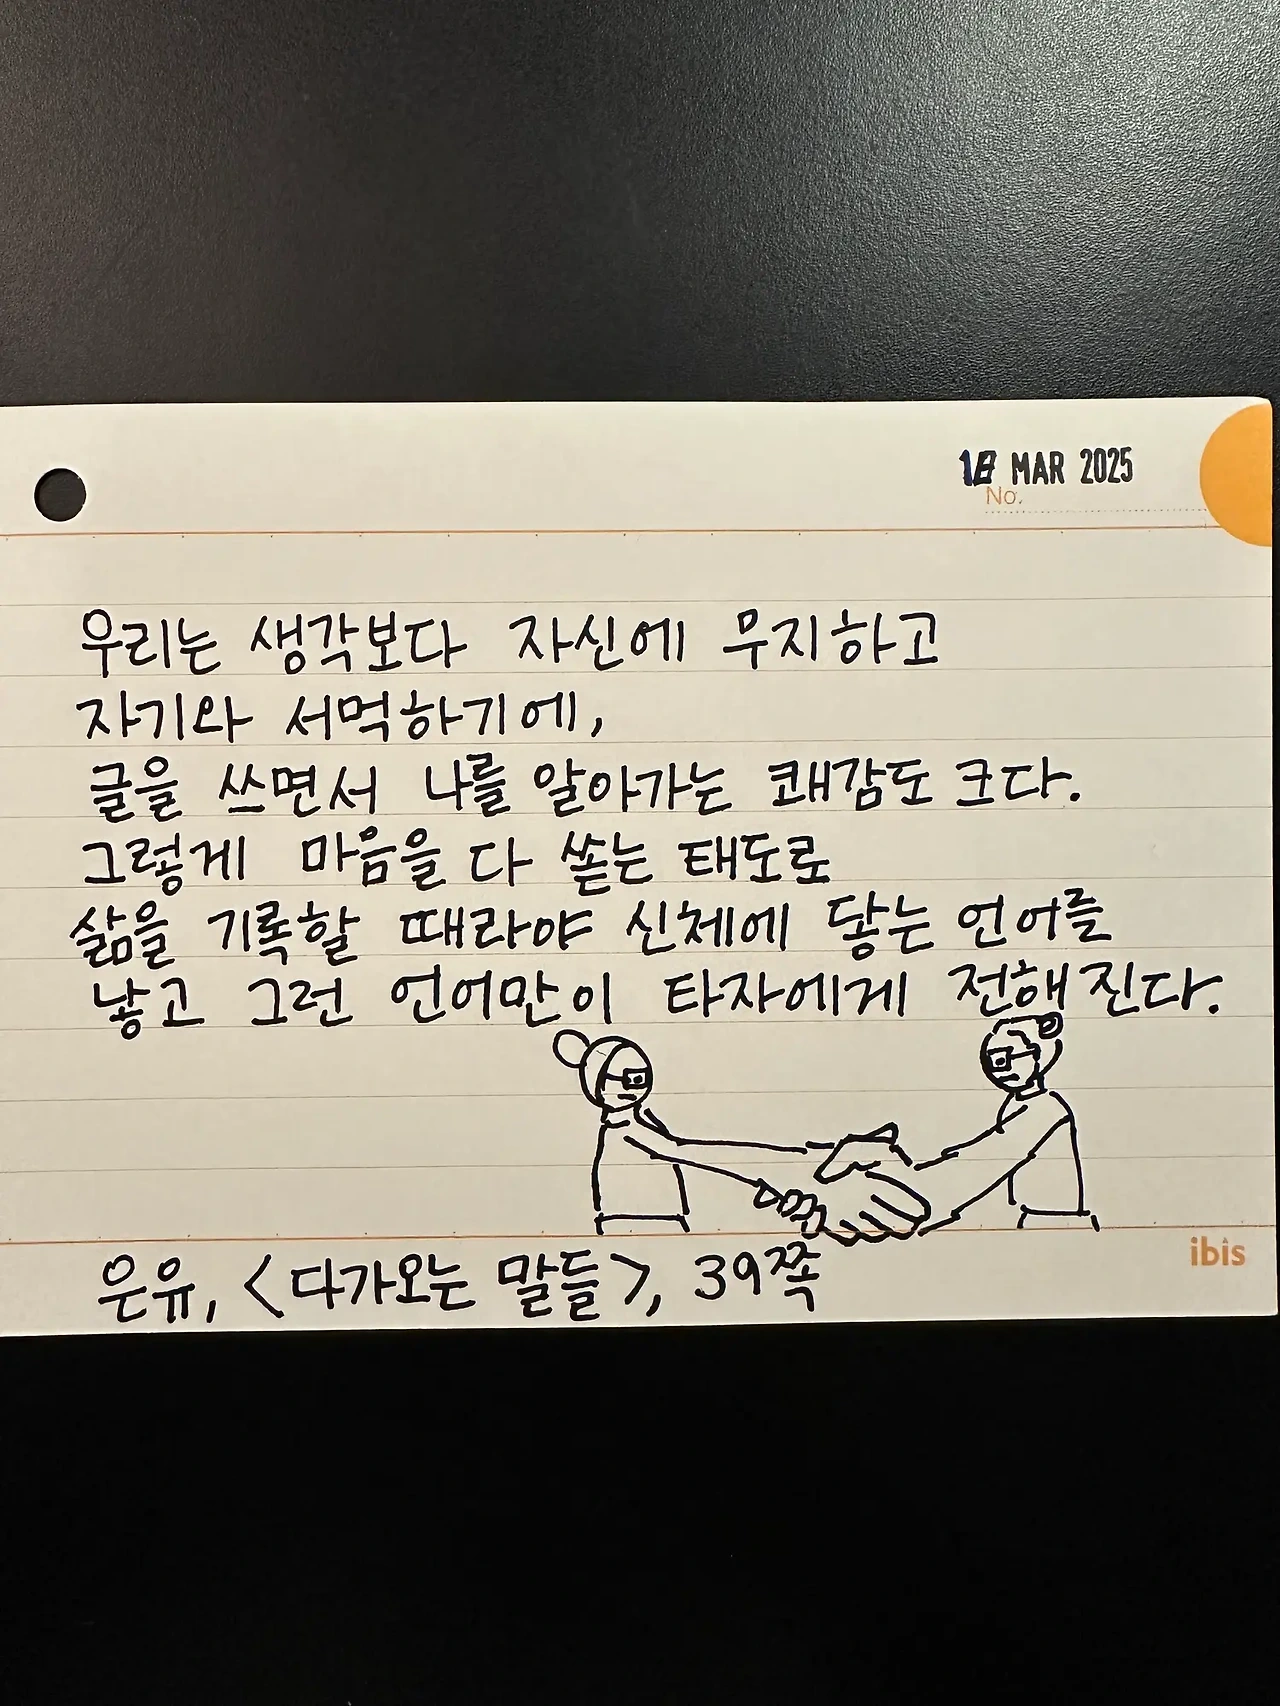 18 MAR 2025
No.
우리는 생각보다 자신에 무지하고
자기와 서먹하기에,
글을 쓰면서 나를 알아가는 쾌감도 크다.
그렇게 마음을 다 쏟는 태도로
삶을 기록할 때라야 신체에 닿는 언어를
낳고 그런 언어만이 타자에게 전해진다.
ibis
은유, <다가오는 말들>, 39쪽